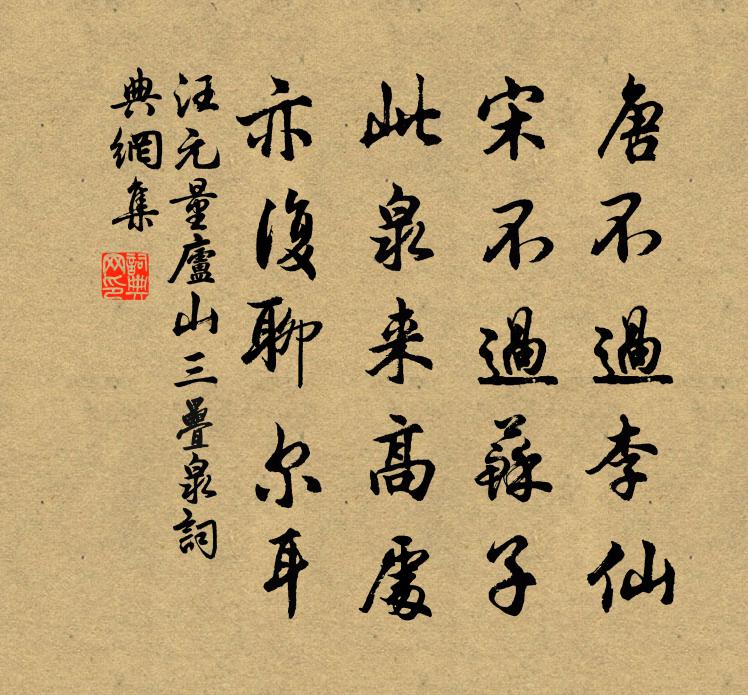 唐不過李仙
宋不過蘇子
此泉来高處
亦復聊尔耳
汪元量廬山三疊泉詞
典網集
詞典网印